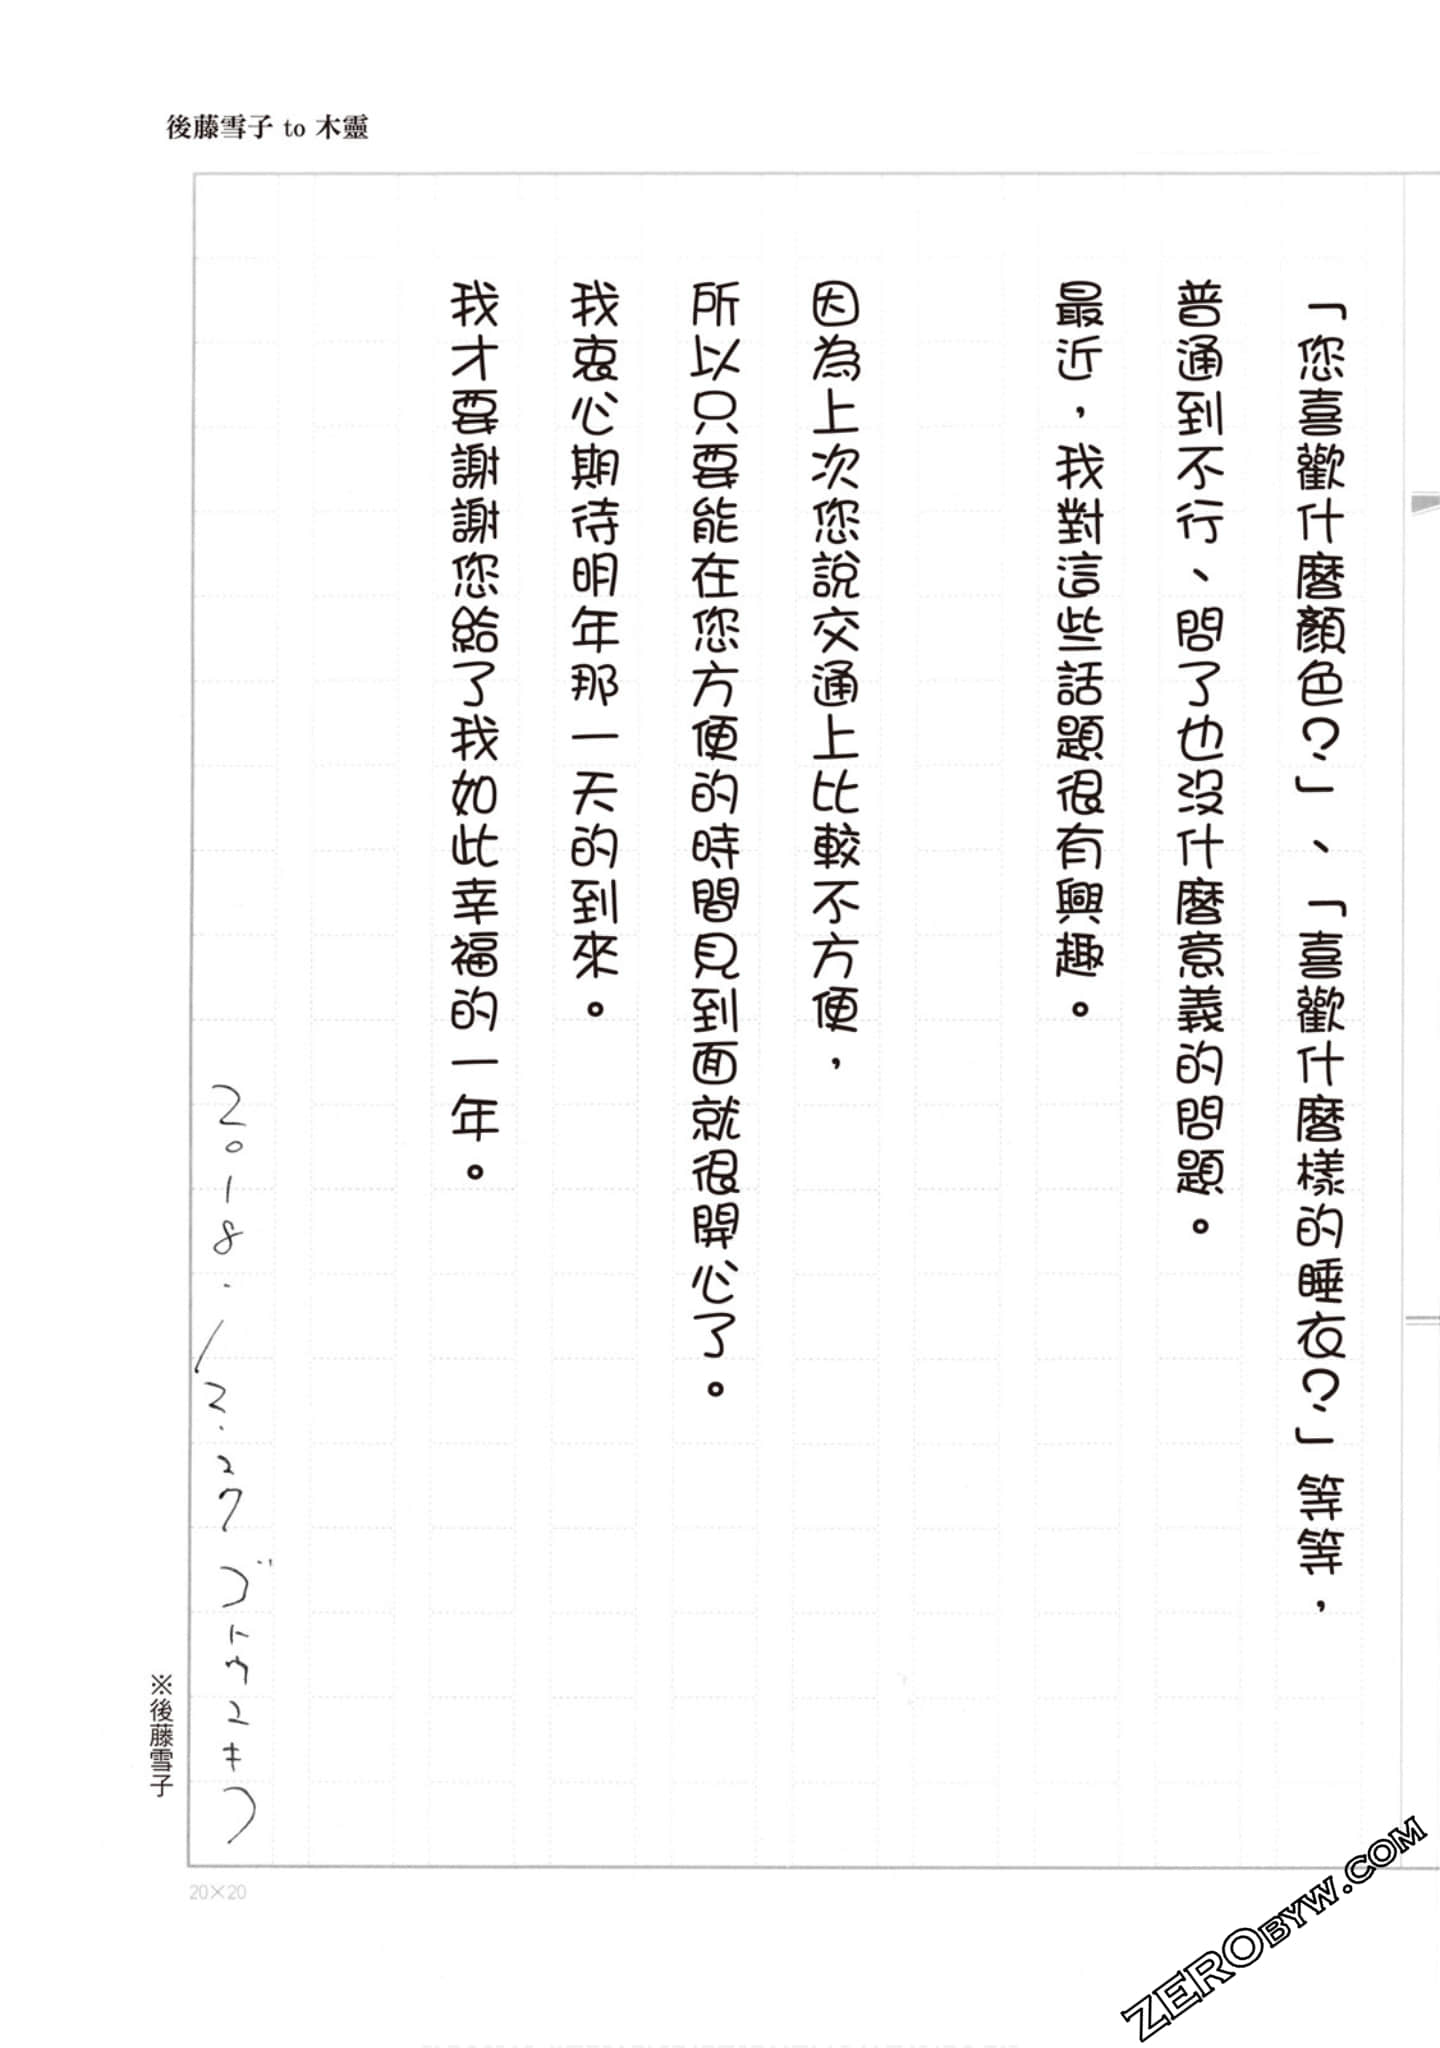 後藤雪子 to 木靈
「您喜歡什麼顏色？」、「喜歡什麼樣的睡衣？」等等，
普通到不行、問了也沒什麼意義的問題。
最近，我對這些話題很有興趣。
因為上次您說交通上比較不方便，
所以只要能在您方便的時間見到面就很開心了。
我衷心期待明年那一天的到來。
我才要謝謝您給了我如此幸福的一年。
2018.12.27 ゴトウユキコ
※後藤雪子
20×20
ZEROBYW.COM